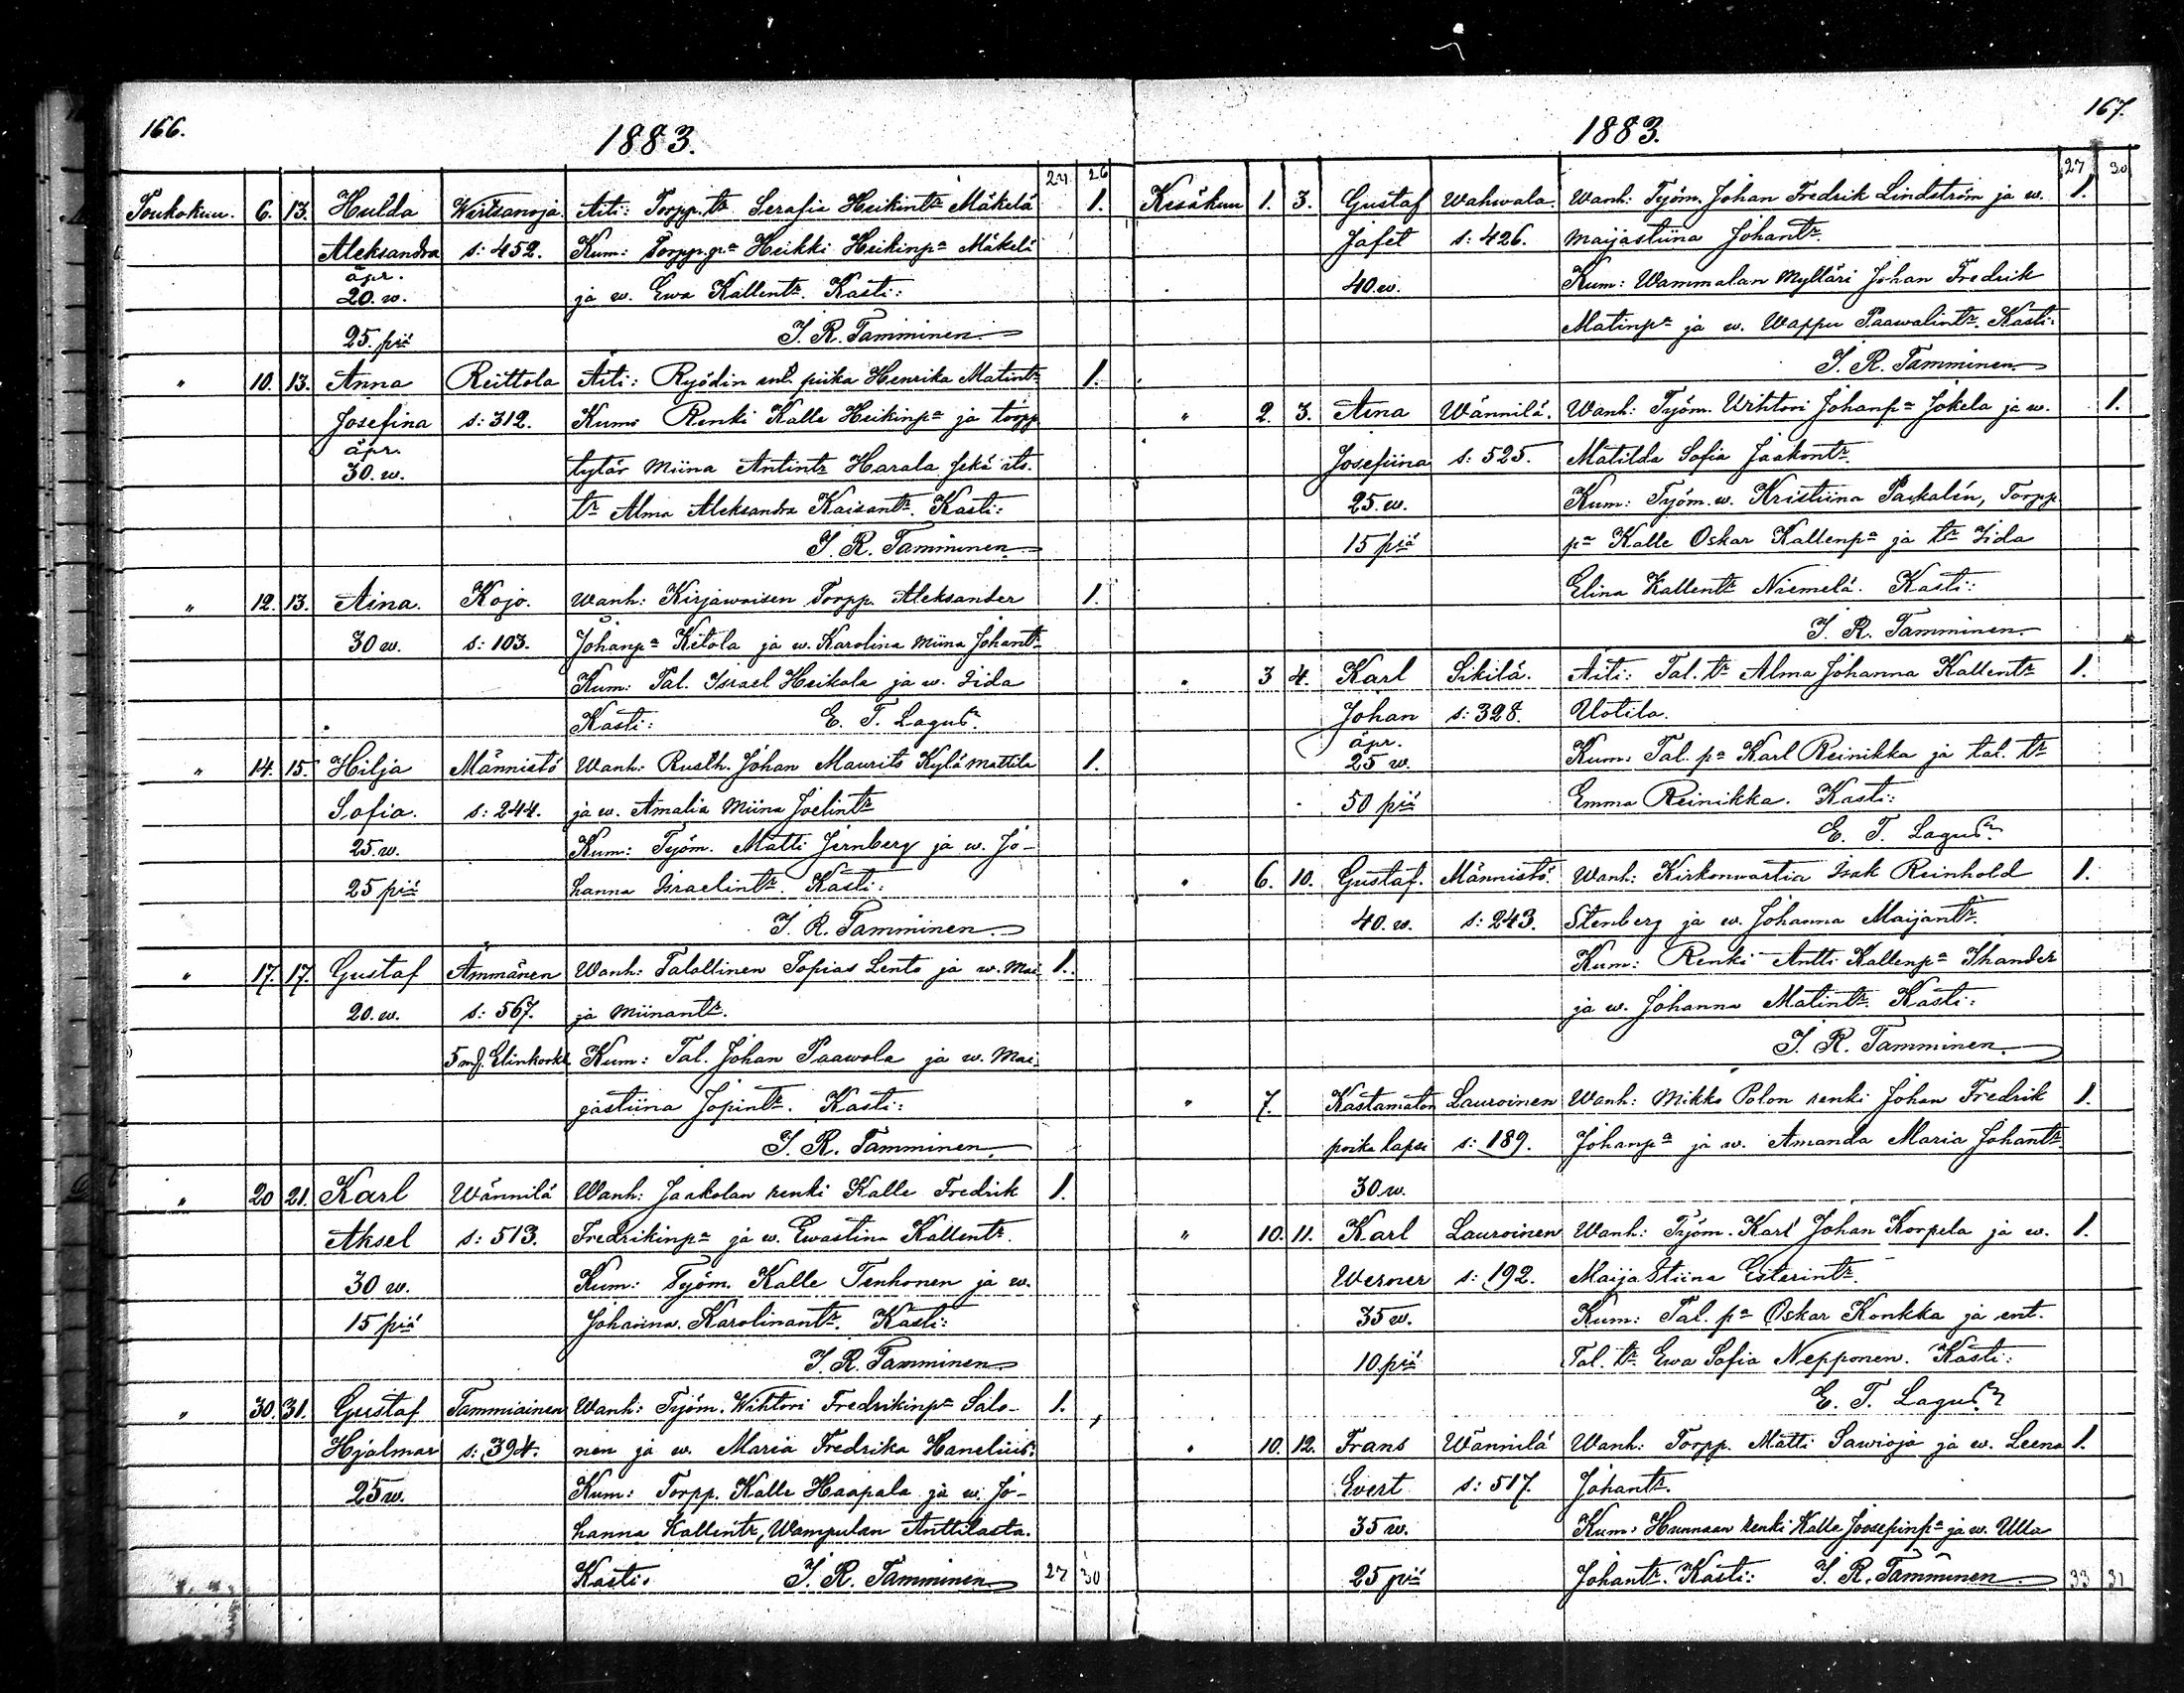 166.
1883.
24 26
Toukokuu. 6. 13. Hulda Wirtsanoja. Äiti: Torpp. tr Serafia Heikintr Mäkelä 1.
Aleksandra s: 452. Kum: Torpp. pa Heikki Heikinpa Mäkelä
äpr.
20. w. ja w. Ewa Kallentr. Kasti:
25. piä J. R. Tamminen
" 10. 13. Anna Reittola Äiti: Ryödin ent. piika Henrika Matintr 1.
Josefina s: 312. Kum: Renki Kalle Heikinpa ja torpp.
äpr.
30. w. tytär Miina Antintr Harala sekä its.
tr Alma Aleksandra Kaisantr. Kasti:
J. R. Tamminen
" 12. 13. Aina. Kojo. Wanh: Kirjawaisen Torpp. Aleksander 1.
30 w. s: 103. Johanpa Ketola ja w. Karolina Miina Johantr
Kum: Tal. Israel Heikola ja w. Iida
Kasti: E. T. Lagus
" 14. 15. Hilja Männistö Wanh: Rusth. Johan Maurits Kylämattila 1.
Sofia. s: 244. ja w. Amalia Miina Joelintr
25. w. Kum: Työm. Matti Jernberg ja w. Jo-
25 piä hanna Israelintr. Kasti:
J. R. Tamminen
" 17. 17. Gustaf Ämmänen Wanh: Talollinen Topias Lento ja w. Mai- 1.
20. w. s: 567. ja Miinantr.
5 mf. Elinkorkk Kum: Tal. Johan Paawola ja w. Mai-
jastiina Jopintr. Kasti:
J. R. Tamminen
" 20 21. Karl Wännilä Wanh: Jaakolan renki Kalle Fredrik 1.
Aksel s: 513. Fredrikinpa ja w. Ewastina Kallentr.
30 w. Kum: Työm. Kalle Tenhonen ja w.
15 piä Johanna Karolinantr. Kasti:
J. R. Tamminen
" 30. 31. Gustaf Tammiainen Wanh: Työm. Wihtori Fredrikinpa Salo- 1.
Hjalmar s: 394. nen ja w. Maria Fredrika Hanelius.
25 w. Kum: Torpp. Kalle Haapala ja w. Jo-
hanna Kallentr, Wampulan Anttilasta.
Kasti. J. R. Tamminen 27 30
167.
1883.
27 30
Kesäkuu 1. 3. Gustaf Wahwala. Wanh: Työm. Johan Fredrik Lindström ja w. 1.
Jafet s: 426. Maijastiina Johantr.
40. w. Kum: Wammalan Mylläri Johan Fredrik
Matinpa ja w. Wappu Paawalintr. Kasti:
J. R. Tamminen
" 2. 3. Aina Wännilä. Wanh: Työm. Wihtori Johanpa Jokela ja w. 1.
Josefiina s: 525. Matilda Sofia Jaakontr.
25. w. Kum: Työm. w. Kristiina Paskalin, Torpp.
15 piä pa Kalle Oskar Kallenpa ja tr Iida
Elina Kallentr Niemelä. Kasti:
J. R. Tamminen.
" 3 4. Karl Sikilä. Äiti: Tal. tr Alma Johanna Kallentr 1.
Johan s: 328. Uotila.
äpr.
25 w. Kum: Tal. pa Karl Reinikka ja tal. tr
50 piä Emma Reinikka. Kasti:
E. T. Lagus
" 6. 10. Gustaf. Männistö. Wanh: Kirkonwartia Isak Reinhold 1.
40. w. s: 243. Stenberg ja w. Johanna Maijantr.
Kum: Renki Antti Kallenpa Ihander
ja w. Johanna Matintr. Kasti:
J. R. Tamminen.
" 7. Kastamaton Lauroinen Wanh: Mikko Polon renki Johan Fredrik 1.
poika lapsi s: 189. Johanpa ja w. Amanda Maria Johantr.
30 w.
" 10. 11. Karl Lauroinen Wanh: Työm. Karl Johan Korpela ja w. 1.
Werner s: 192. Maija Stiina Esterintr.
35 w. Kum: Tal. pa Oskar Konkka ja ent.
10 piä Tal. tr Ewa Sofia Nepponen. Kasti:
E. T. Lagus
" 10. 12. Frans Wännilä Wanh: Torpp. Matti Sawioja ja w. Leena 1.
Evert s: 517. Johantr.
35 w. Kum: Hunnaan renki Kalle Joosepinpa ja w. Ulla
25 piä Johantr. Kasti: J. R. Tamminen 33 31